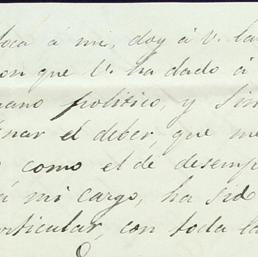 toca á mi, doy á V. la
on que V. ha dado á
mano politico, y sin
nar el deber, que me
como el de desemp
á mi cargo, ha sid
articular, con toda la